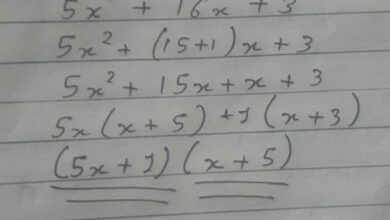 5x² + 16x + 3
5x² + (15+1)x + 3
5x² + 15x + x + 3
5x(x + 5) + 1(x + 3)
(5x + 1)(x + 5)